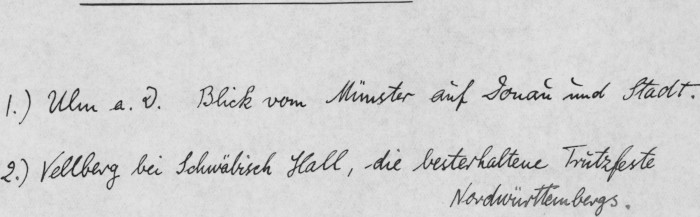 1.) Ulm a. D. Blick vom Münster auf Donau und Stadt.
2.) Vellberg bei Schwäbisch Hall, die besterhaltene Trutzfeste
Nordwürttembergs.